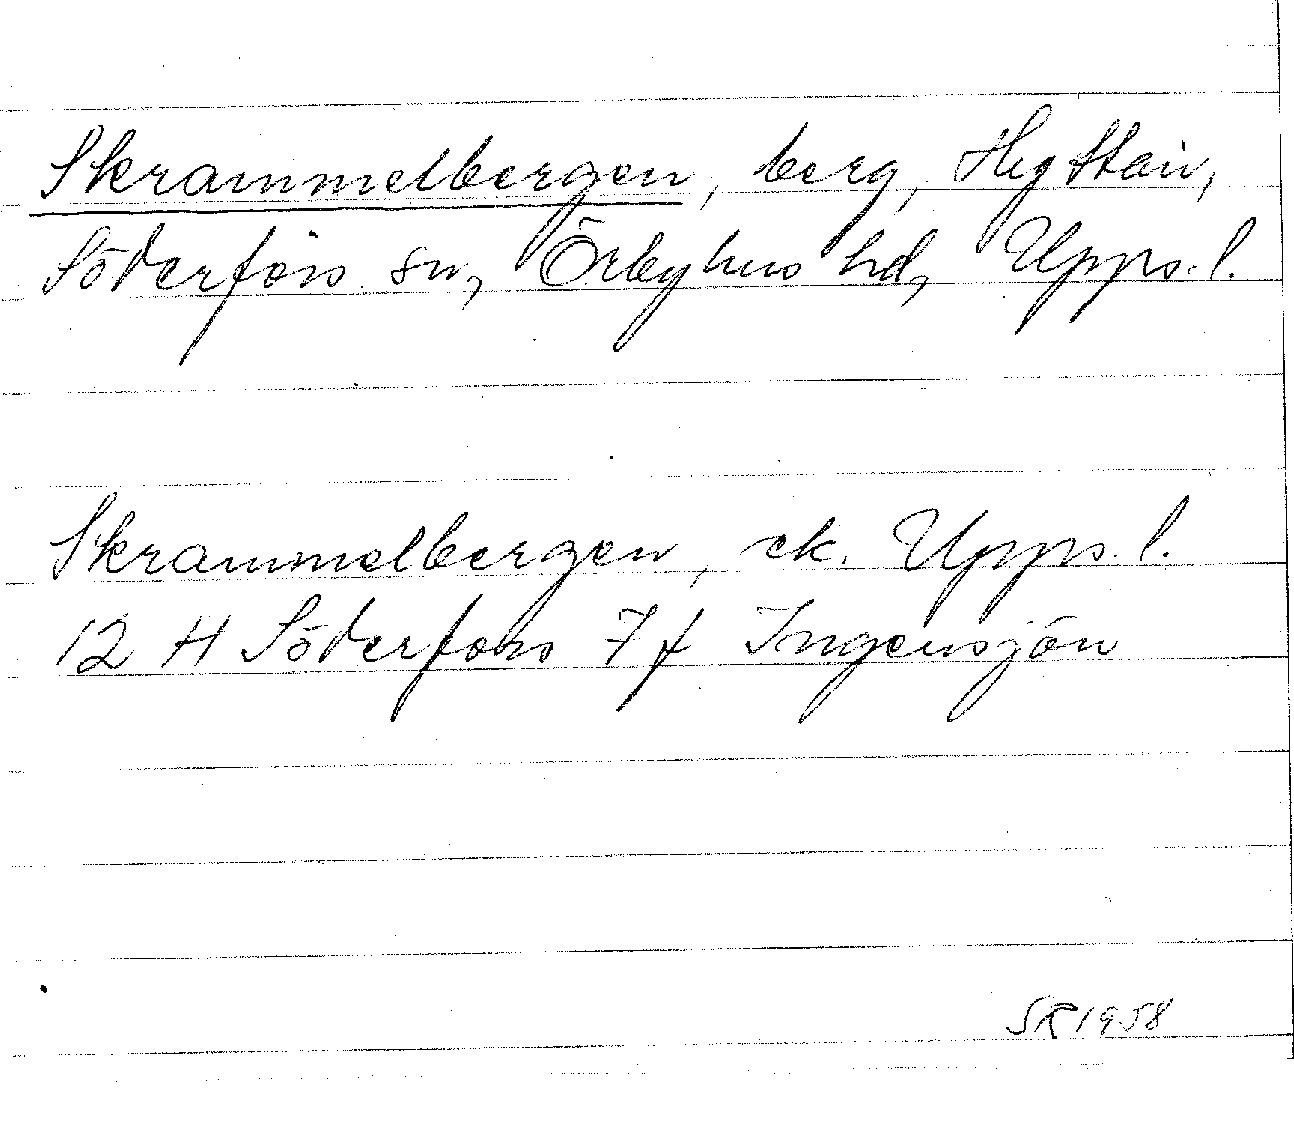 Skrammelbergen, berg,
Söderfors sn, Örbyhus hd, Upps. l.
Skrammelbergen, ek. Upps. l.
12 H Söderfors 7f Ingensjön
SR 1958